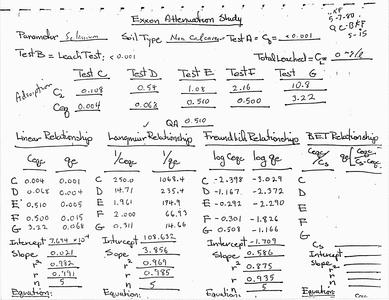 Exxon Attenuation Study
5-7-80
QC-BKF
5-15
Parameter Selenium Soil Type Non Calcareous Test A = C₀ = <0.001
Test B = Leach Test; <0.001 Total Leached = 0
Test C Test D Test E Test F Test G
Adsorption C₂ 0.108 0.54 1.08 2.16 10.8
Ceq 0.004 0.068 0.510 0.500 3.22
QA 0.510
Linear Relationship Langmuir Relationship Freundlich Relationship BET Relationship
Ceqc qe 1/Ceqc 1/qe log Ceqc log qe Ceqc/Cs
C 0.004 0.001 C 250.0 1068.4 C -2.398 -3.029 C
D 0.068 0.004 D 14.71 235.4 D -1.167 -2.372 D
E 0.510 0.005 E 1.961 174.9 E -0.292 -2.290 E
F 0.500 0.015 F 2.000 66.93 F -0.301 -1.826 F
G 3.22 0.068 G 0.311 14.66 G 0.508 -1.166 G
Intercept 7.694 × 10⁻⁴ Intercept 108.632 Intercept -1.709 Cs
Slope 0.021 Slope 3.856 Slope 0.586 Intercept
r² 0.982 r² 0.969 r² 0.875 Slope
r 0.991 r 0.985 r 0.935 r²
n 5 n 5 n 5 r
n
Equation: Equation: Equation: Equation: